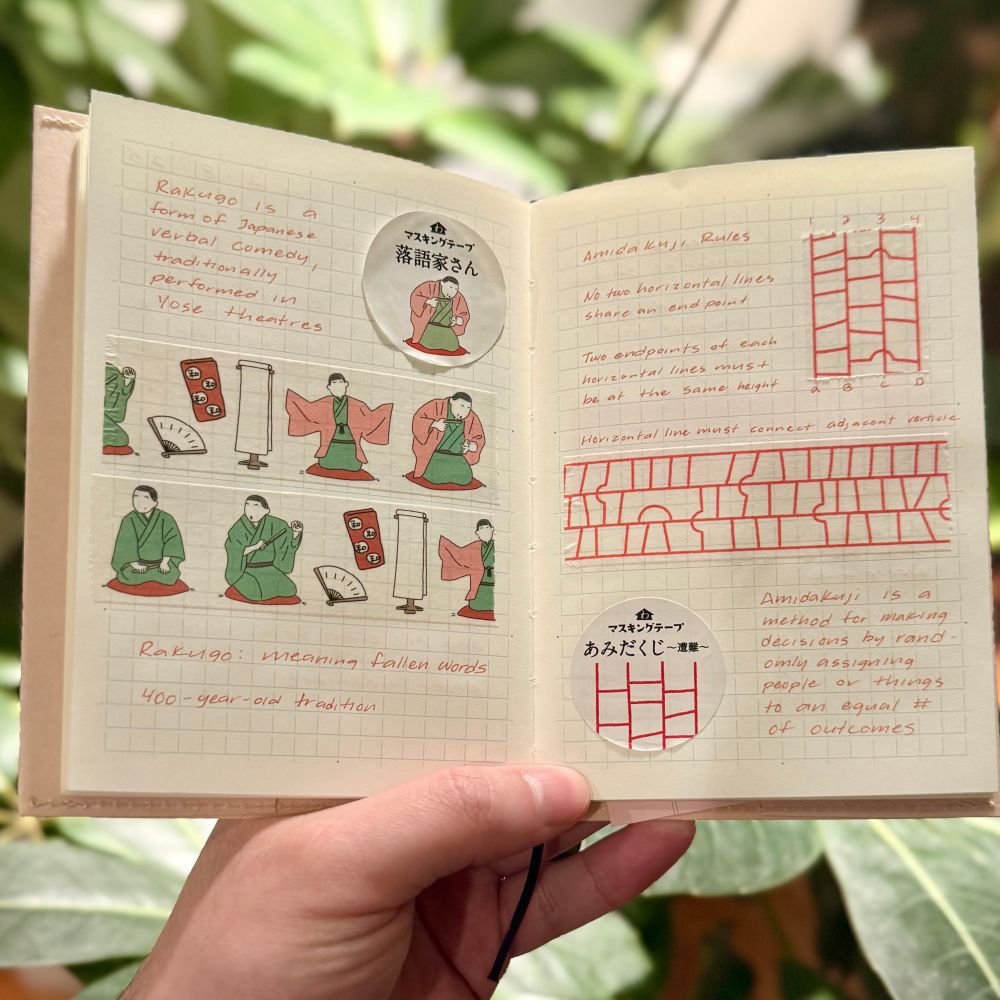 Rakugo is a
form of Japanese
verbal comedy,
traditionally
performed in
Yose theatres
わ
マスキングテープ
落語家さん
Rakugo: meaning fallen words
400-year-old tradition
Amidakuji Rules
No two horizontal lines
share an end point
Two endpoints of each
horizontal lines must
be at the same height
1 2 3 4
A B C D
Horizontal line must connect adjacent verticle
わ
マスキングテープ
あみだくじ～遭難～
Amidakuji is a
method for making
decisions by rand-
omly assigning
people or things
to an equal #
of outcomes